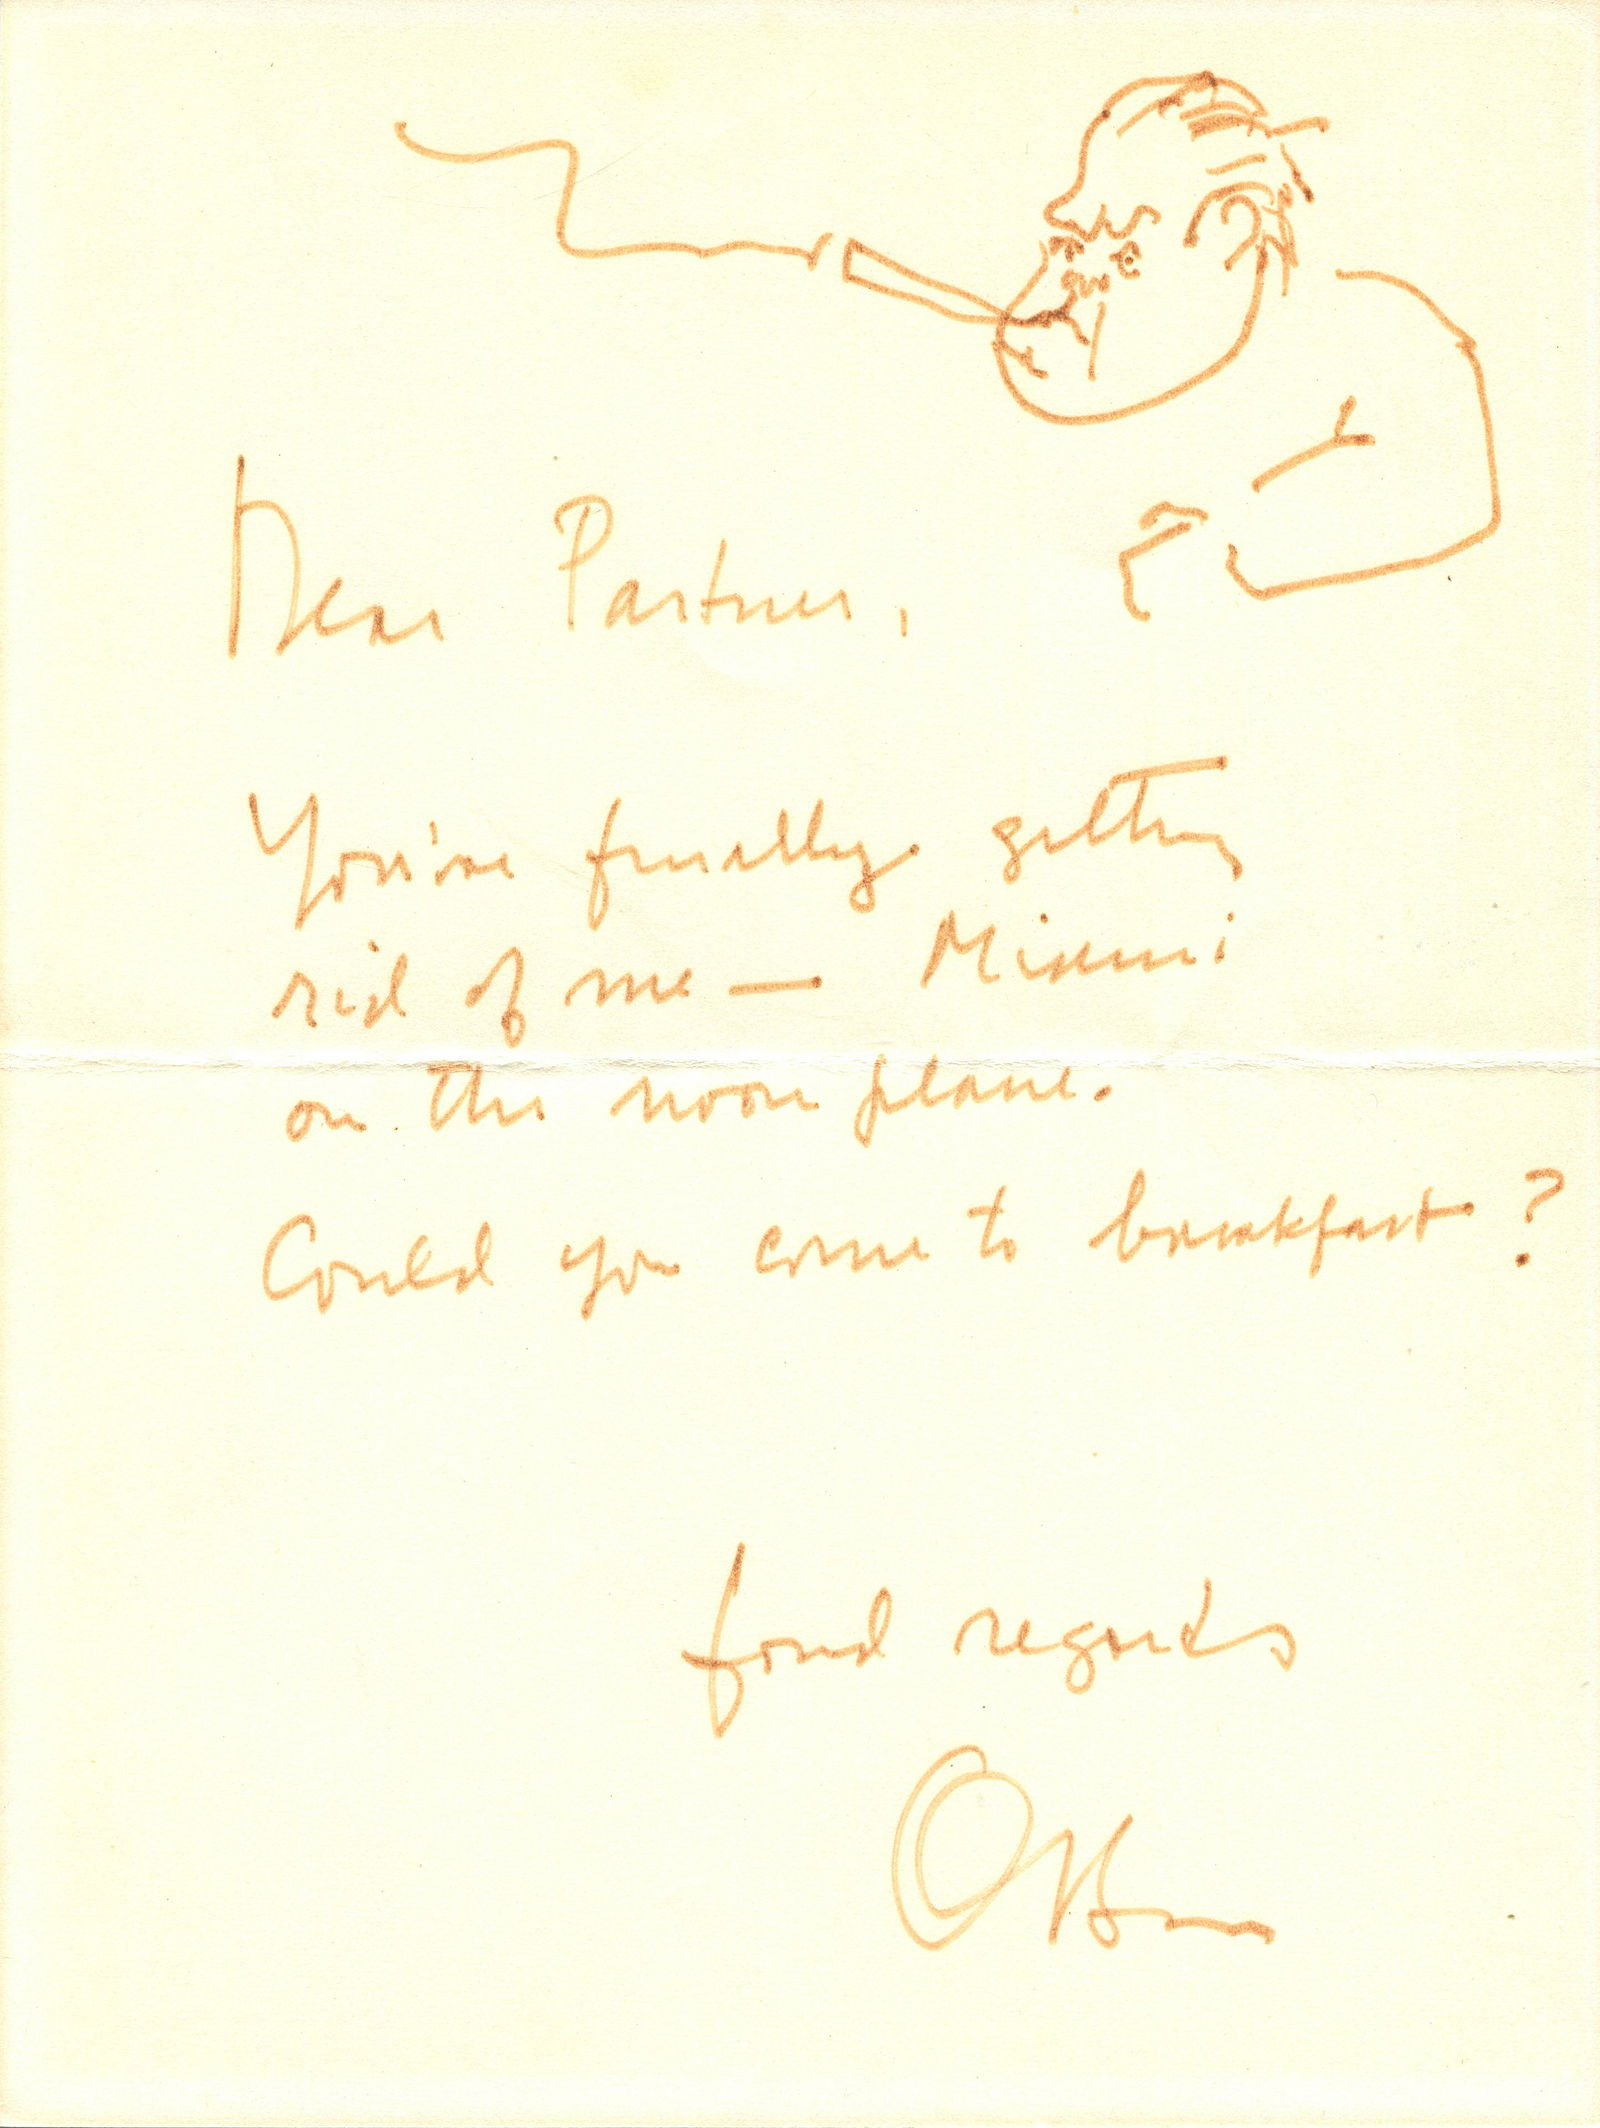 Dear Partner,
You're finally getting
rid of me — Miami
on the noon plane.
Could you come to breakfast?
fond regards